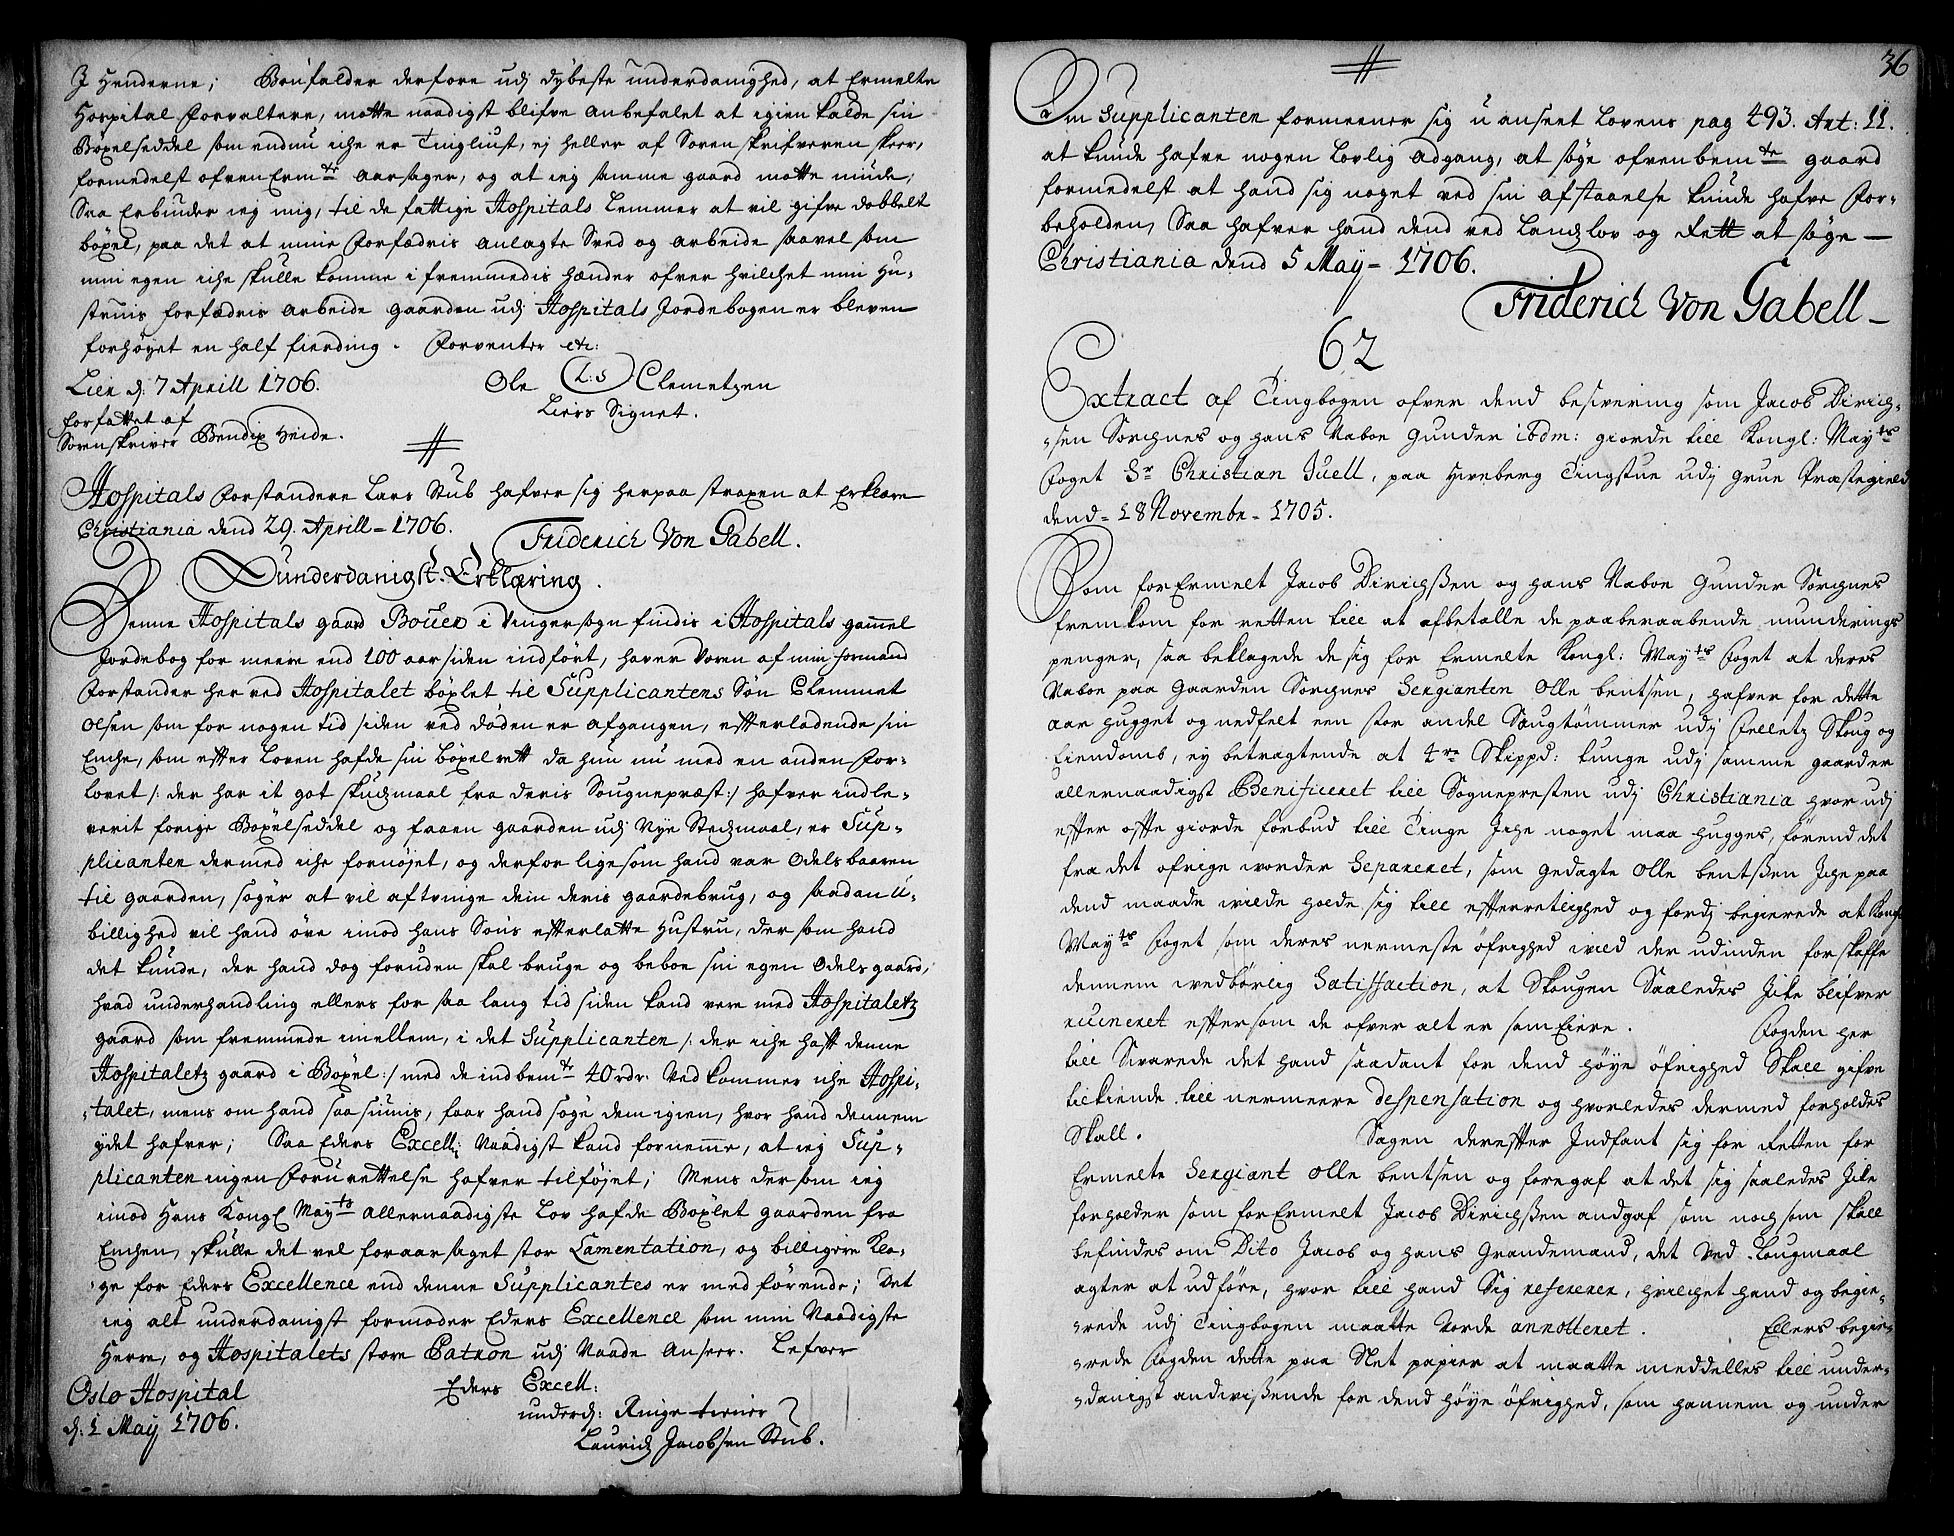 J Henderne; Bönfalder derfore udj dybeste underdanighed, at Ermelte
Hospital Forvaltere, motte naadigst blifve anbefalet at igien kalde sin
Böxelseddel som endnu iche er Tingliust, ej heller af Sorenskrifveren skeer,
formedelst ofvenErmte aarsager, og at ieg samme gaard motte niude;
Saa Erbinder ieg mig, til de fattige Hospitals Lemmer at vil gifve dobbelt
böxel, paa det at mine Forfædris anlagte Sved og arbeide saavel som
min egen iche skulle komme i fremmedis hænder ofver hvilchet min Hu-
struis forfædris arbeide gaarden udj Hospitals Jordebogen er bleven
forhöyet en half fierding. Forventer etc:
Lier d: 7 Aprill 1706. Ole (L:S) Clemetzen
forfattet af Liers Signet.
Sorenskriver Bendix Heide.
Hospitals Forstandere Lars Stub hafver sig herpaa straxen at Erklære
Christiania dend 29. Aprill - 1706. Friderich Von Gabell.
Dunderdanigst. Erklæring.
Denne Hospitals gaard Bouer i Vingersogn findis i Hospitals gammel
Jordebog for meere end 100 aar siden indfört, haver Voren af min formand
Forstander her ved Hospitalet böxlet til Supplicantens Sön Clemmet
Olsen som for nogen tid siden ved döden er afgangen, efterladende sin
Enche, som efter Loven hafde sin böxel rett da hun nu med en anden For-
lovet /: der har it got skudsmaal fra deris Sougnepræst :/ hafver indle-
verit forige Böxelseddel og faaen gaarden udj Nye Stedsmaal, er Sup-
plicanten dermed iche fornöjet, og derfor ligesom hand var Odelsbaaren
til gaarden, söger at vil aftvinge dem deris gaardebrug, og saadan U-
billighed vil hand öve imod hans Söns efterlatte Hustru, der som hand
det kunde, der hand dog foruden skal bruge og beboe sin egen Odels gaard,
hvad underhandling ellers for saa lang tid siden kand vere med Hospitaletz
gaard som fremmede imellem, i det Supplicanten /: der iche haft denne
Hospitaletz gaard i Böxel :/ med de indbemte 40 rdr. Ved kommer iche Hospi-
talet, mens om hand saa siunis, faar hand söge dem igien, hvor hand dennem
ydet hafver; Saa Eders Excell: Naadigst kand fornemme, at ieg Sup-
plicanten ingen ForuretteIse hafver tilföjet; Mens der som ieg
imod Hans Kongl Mayts allernaadigste Lov hafde Böxlet gaarden fra
Enchen, skulle det vel foraarsaget stor Lamentation, og billigere Kla-
ge for Eders Excellence end denne Supplicantes er med förende; Det
ieg alt underdanigst formoder Eders Excellence som min Naadigste
Herre, og Hospitalets store Patron udj Naade anseer. Lefver
Oslo Hospital Eders Excell:
d. 1 May 1706. underd: Ringe tiener
Lauridz Jacobsen Stub.
36
Om Supplicanten formeener sig u anseet Lovens pag 493. Art: 11.
at kunde hafve nogen lovlig adgang, at söge ofvenbemte gaard
formedelst at hand sig noget ved sin afstaaelse kunde hafve For-
beholden, Saa hafver hand dend ved Landzlov og Rett at söge -
Christiania dend 5 May - 1706.
Friderich Von Gabell -
62
Extract af Tingbogen ofver dend besivering som Jacob Dirich-
sen Sorchnes og hans Naboe Gunder ibdm: giorde till Kongl: Mayts
Foget Sr Christian Juell, paa Hveberg Tingstue udj Grue Præstegield
dend - 18 Novembr - 1705.
Som forErmelt Jacob Dirichsen og hans Naboe Gunder Sorchnes
fremkom for retten till at afbetalle de paaberaabende munderings
penger, saa beklagede de sig for Ermelte Kongl: Mayts Foget at deres
Naboe paa Gaarden Sorchnes Sergianten Olle bentsen, hafver for dette
aar hugget og nedfelt een stor andel Saugtömmer udj Felletz Skoug og
Eiendomb, ey betragtende at 4re Skippd: tunge udj samme gaard er
allernaadigst Benificeret till Sognepresten udj Christiania hvor udj
efter ofte giorde forbud till Tinge Iche noget maa hugges, förend det
fra det öfrige vorder Separeret, som gedagte Olle bentsen Iche paa
dend maade vilde holde sig till efterretlighed og fordj begierede at Kongl
Mayts Foget som deres nermeste öfrighed vild der udinden forskaffe
dennem vedbörlig Satisfaction, at Skougen Saaledes Icke blifver
ruineret eftersom de ofver alt er som Eiere. Fogden her
till Svarede det hand saadant for dend höye öfrighed Skall gifve
tilkiende till nermeere despensation og hvorledes dermed forholdes
Skall. Sagen derefter Indfant sig for Retten for
Ermelte Sergiant Olle bentsen og foregaf at det sig saaledes Icke
forholder som forErmelt Jacob Dirichsen andgaf som noch som skall
befindes om Dito Jacob og hans Grandemand, det Ved Lougmaal
agter at udföre, hvor till hand Sig refererer, hvilchet hand og begie-
rede udj Tingbogen maatte Vorde annotteret. Ellers begie-
rede Fogden dette paa Slet papier at maatte meddelles till under-
danigst andvisende for dend höye öfrighed, som hannem og under